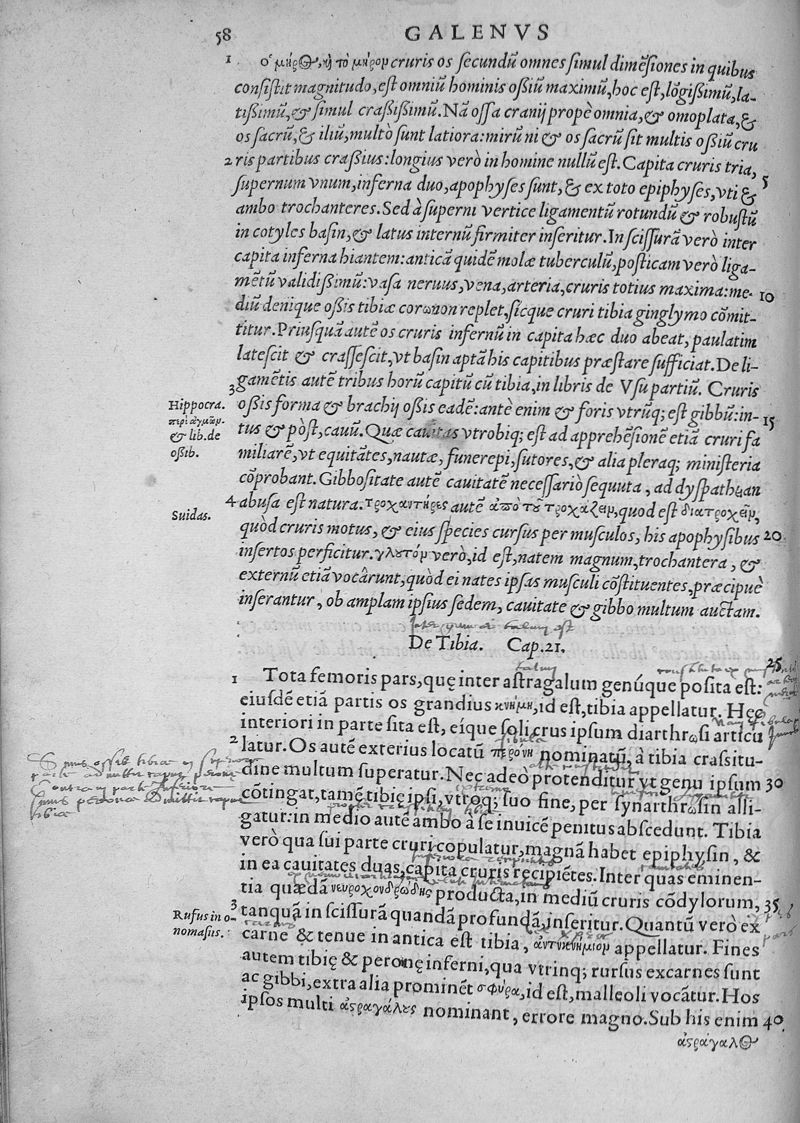 58 GALENVS
1 ὁ μηρὸς, ἢ τὸ μηρὸν cruris os secundū omnes simul dimēsiones in quibus
consistit magnitudo, est omniū hominis ossiū maximū, hoc est, lōgissimū, la-
tissimū, & simul crassissimū. Nā ossa cranij propè omnia, & omoplata, &
os sacrū, & iliū, multò sunt latiora: mirū ni & os sacrū sit multis ossiū cru
2 ris partibus crassius: longius verò in homine nullū est. Capita cruris tria,
supernum vnum, inferna duo, apophyses sunt, & ex toto epiphyses, vti & 5
ambo trochanteres. Sed à superni vertice ligamentū rotundū & robustū
in cotyles basin, & latus internū firmiter inseritur. In scissurā verò inter
capita inferna hiantem: anticā quidē molæ tuberculū, posticam verò liga-
mētū validissimū: vasa neruus, vena, arteria, cruris totius maxima: me- 10
diū denique ossis tibiæ corωnon replet, sicque cruri tibia ginglymo cōmit-
titur. Priusquā autē os cruris infernū in capita hæc duo abeat, paulatim
latescit & crassescit, vt basin aptā his capitibus præstare sufficiat. De li-
3 gamētis autē tribus horū capitū cū tibia, in libris de Vsu partiū. Cruris
Hippocra.
περὶ ἀγμῶν.
& lib. de
ossib.
ossis forma & brachij ossis eadē: antè enim & foris vtrūq; est gibbū: in- 15
tus & pòst, cauū. Quæ cauitas vtrobiq; est ad apprehēsionē etiā cruri fa
miliarē, vt equitātes, nautæ, funerepi, sutores, & alia pleraq; ministeria
cōprobant. Gibbositate autē cauitatē necessariò sequuta, ad dyspathean
Suidas.
4 abusa est natura. τροχαντῆρες autē ἀπὸ τοῦ τροχάζειν, quod est διατροχεῖν,
quòd cruris motus, & eius species cursus per musculos, his apophysibus 20
insertos perficitur. γλουτὸν verò, id est, natem magnum, trochantera, &
externū etiā vocârunt, quòd ei nates ipsas musculi cōstituentes, præcipuè
inserantur, ob amplam ipsius sedem, cauitate & gibbo multum auctam.
De Tibia. Cap. 21.
1 Tota femoris pars, quę inter astragalum genúque posita est: 25
eiusdē etiā partis os grandius κνήμη, id est, tibia appellatur. Hęc
interiori in parte sita est, eíque soli crus ipsum diarthrωsi articū
2 latur. Os autē exterius locatū περόνη nominatū, à tibia crassitu-
dine multum superatur. Nec adeò protenditur vt genu ipsum 30
cōtingat, tamē tibię ipsi, vtroq; suo fine, per synarthrωsin alli-
gatur: in medio autē ambo à se inuicē penitus abscedunt. Tibia
verò qua sui parte cruri copulatur, magnā habet epiphysin, &
in ea cauitates duas, capita cruris recipiētes. Inter quas eminen-
tia quædā νευροχονδρώδης producta, in mediū cruris cōdylorum, 35
Rufus in o-
nomasijs.
3 tanquā in scissurā quandā profundā, inseritur. Quantū verò ex
carne & tenue in antica est tibia, ἀντικνήμιον appellatur. Fines
autem tibię & peronę inferni, qua vtrinq; rursus excarnes sunt
ac gibbi, extra alia prominēt σφυρα, id est, malleoli vocātur. Hos
ipsos multi ἀστραγάλους nominant, errore magno. Sub his enim 40
ἀστράγαλος